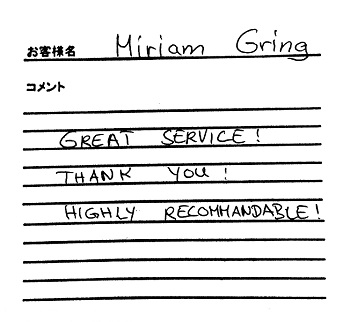 お客様名 Miriam Gring
コメント
GREAT SERVICE!
THANK YOU!
HIGHLY RECOMMANDABLE!